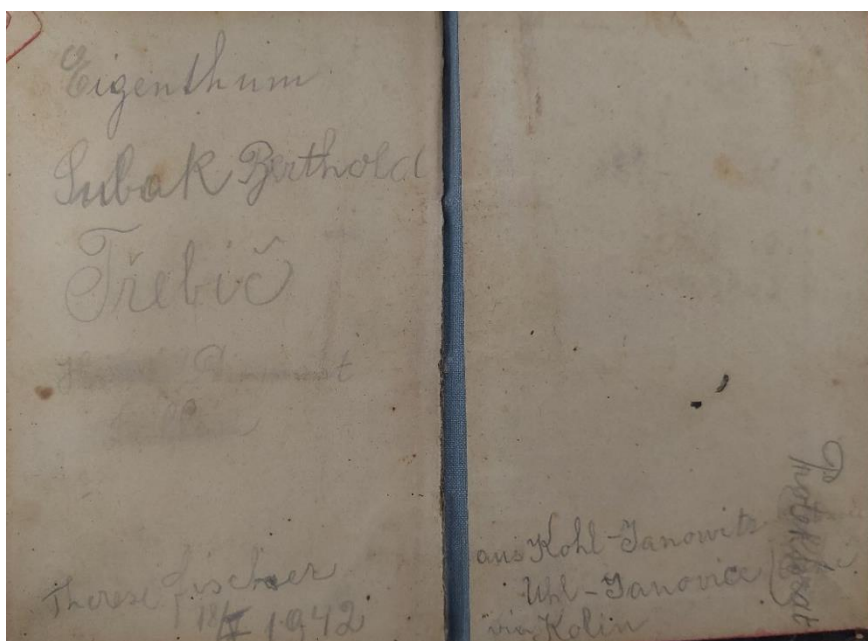 Eigenthum
Subak Berthold
Třebič
Therese Fischer
18/II 1942
aus Kohl-Janowitz
Uhl-Janovice
via Kolin
Protektorat